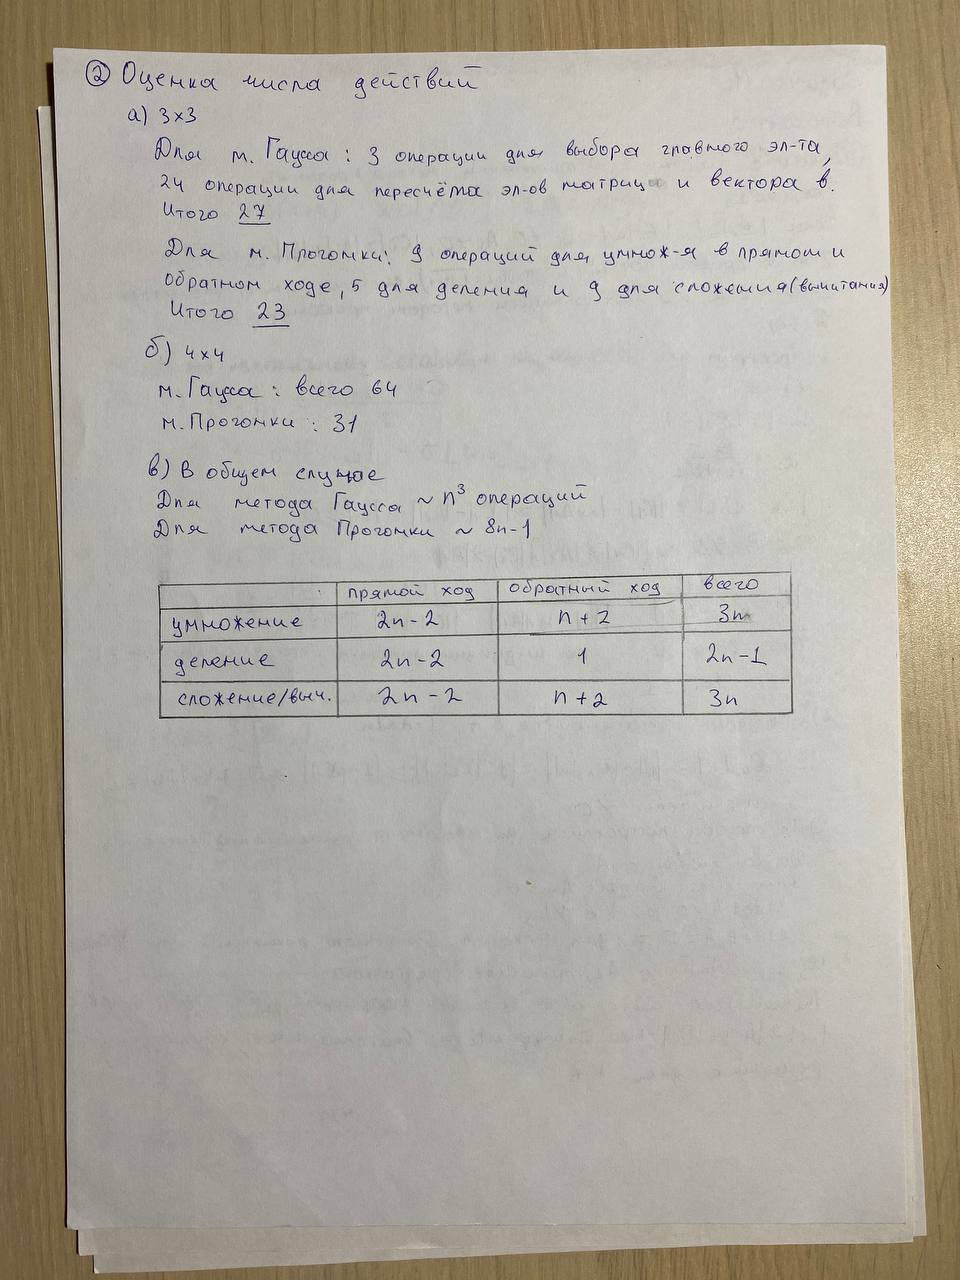 ② Оценка числа действий
а) 3×3
Для м. Гаусса : 3 операции для выбора главного эл-та,
24 операции для пересчёта эл-ов матрицы и вектора b.
Итого 27
Для м. Прогонки: 9 операций для умнож-я в прямом и
обратном ходе, 5 для деления и 9 для сложения (вычитания)
Итого 23
б) 4×4
м. Гаусса : всего 64
м. Прогонки : 31
в) В общем случае
Для метода Гаусса ~ n³ операций
Для метода Прогонки ~ 8n-1
прямой ход обратный ход всего
умножение 2n-2 n+2 3n
деление 2n-2 1 2n-1
сложение/выч. 2n-2 n+2 3n